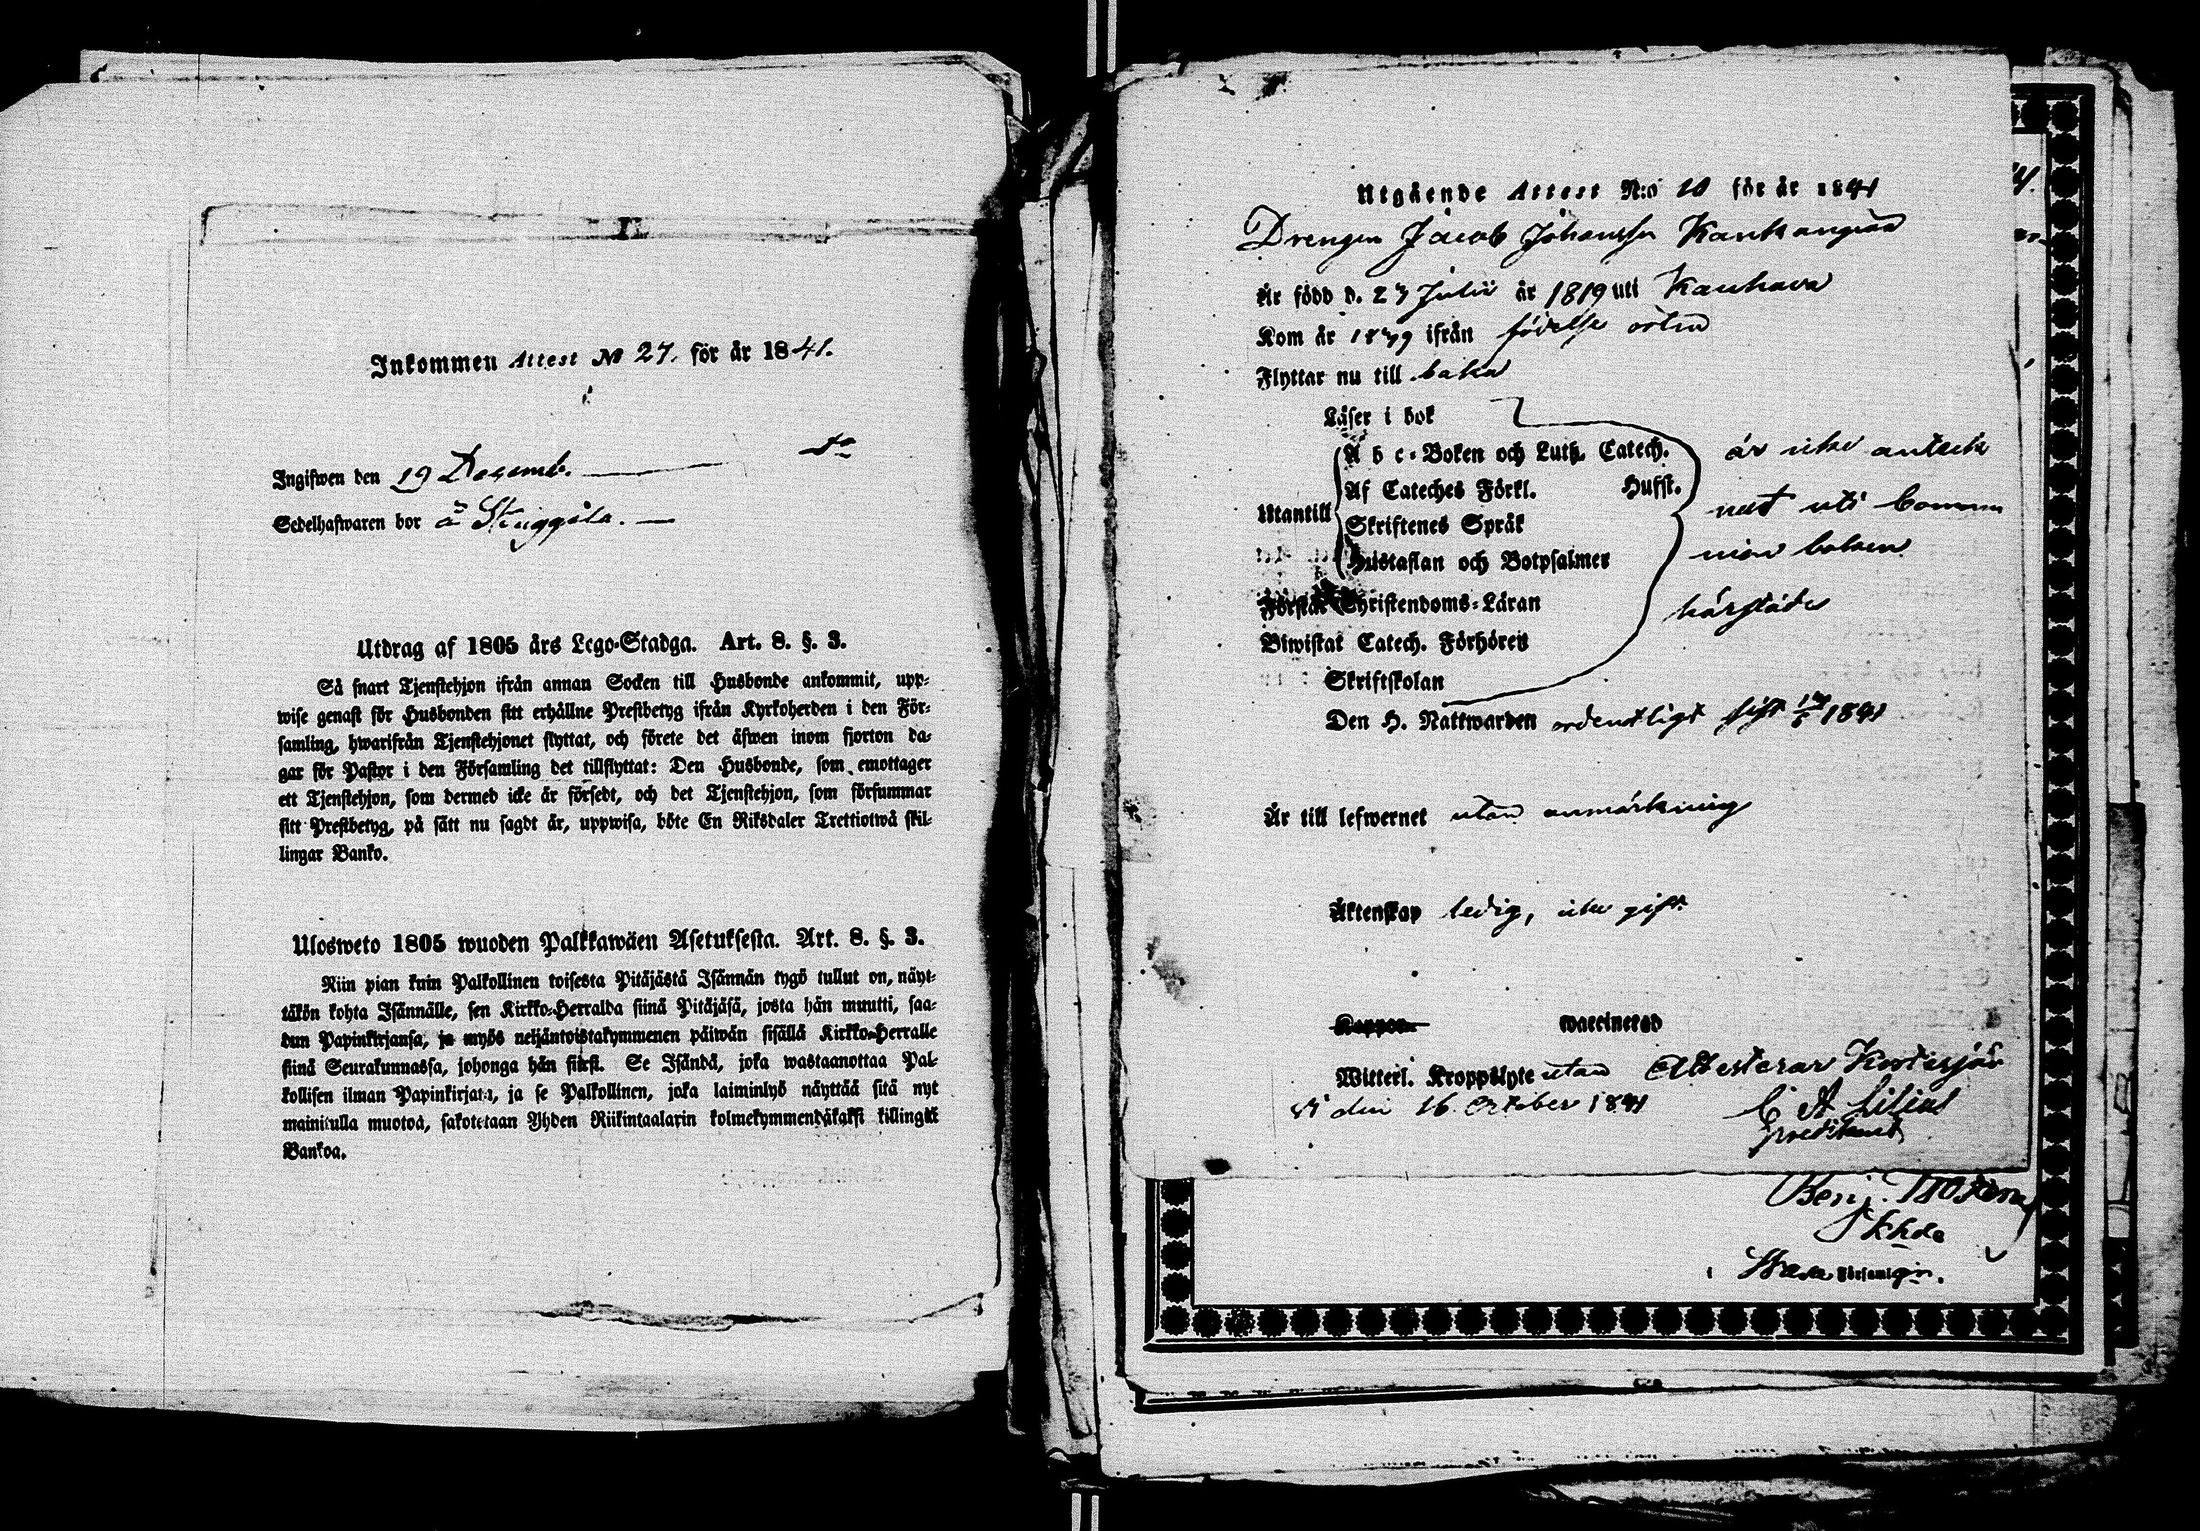 Inkommen Attest № 27. för år 1841.
Ingifwen den 19 Decemb.
Sedelhafwaren bor å Stuggåla.
Utdrag af 1805 års Lego-Stadga. Art. 8. §. 3.
Så snart Tjenstehjon ifrån annan Socken till Husbonde ankommit, upp-
wise genast för Husbonden sitt erhållne Prestbetyg ifrån Kyrkoherden i den För-
samling, hwarifrån Tjenstehjonet flyttat, och förete det äfwen inom fjorton da-
gar för Pastor i den Församling det tillflyttat: Den Husbonde, som emottager
ett Tjenstehjon, som dermed icke är försedt, och det Tjenstehjon, som försummar
sitt Prestbetyg, på sätt nu sagdt är, uppwisa, böte En Riksdaler Trettiotwå skil-
lingar Banko.
Ulosweto 1805 wuoden Palkkawäen Asetuksesta. Art. 8. §. 3.
Niin pian kuin Palkollinen toisesta Pitäjästä Isännän tygö tullut on, näyt-
täkön kohta Isännälle, sen Kirkko-Herralda siinä Pitäjäsä, josta hän muutti, saa-
dun Papinkirjansa, ja myös neljäntoistakymmenen päiwän sisällä Kirkko-Herralle
siinä Seurakunnassa, johonga hän siirsi. Se Isändä, joka wastaanottaa Pal-
kollisen ilman Papinkirjata, ja se Palkollinen, joka laiminlyö näyttää sitä nyt
mainitulla muotoa, sakotetaan Yhden Riikintaalarin kolmekymmendäkaksi killingiä
Bankoa.
Utgående Attest N:o 10 för år 1841
Drengen Jacob Johansson Kankangräs
är född d. 27 Julii år 1819 uti Kauhava
Kom år 1839 ifrån födelse orten
Flyttar nu till baka
Läser i bok
A b c-Boken och Luth. Catech. är icke anteck
Af Cateches Förkl. Husst.
Utantill Skriftenes Språk nat uti Commu
Hustaflan och Botpsalmer nion boken
Förstår Christendoms-Läran härstädes
Biwistat Catech. Förhören
Skriftskolan
Den H. Nattwarden ordentligt sist 1841
Är till lefwernet utan anmärkning
Äktenskap ledig, icke gift
Koppor waccinerad
Witterl. Kroppslyte utan Attesterar Kortesjär
vi den 16 October 1841 C A Lilius
predikant
Benj.
Khde
i Wasa Församlgn.